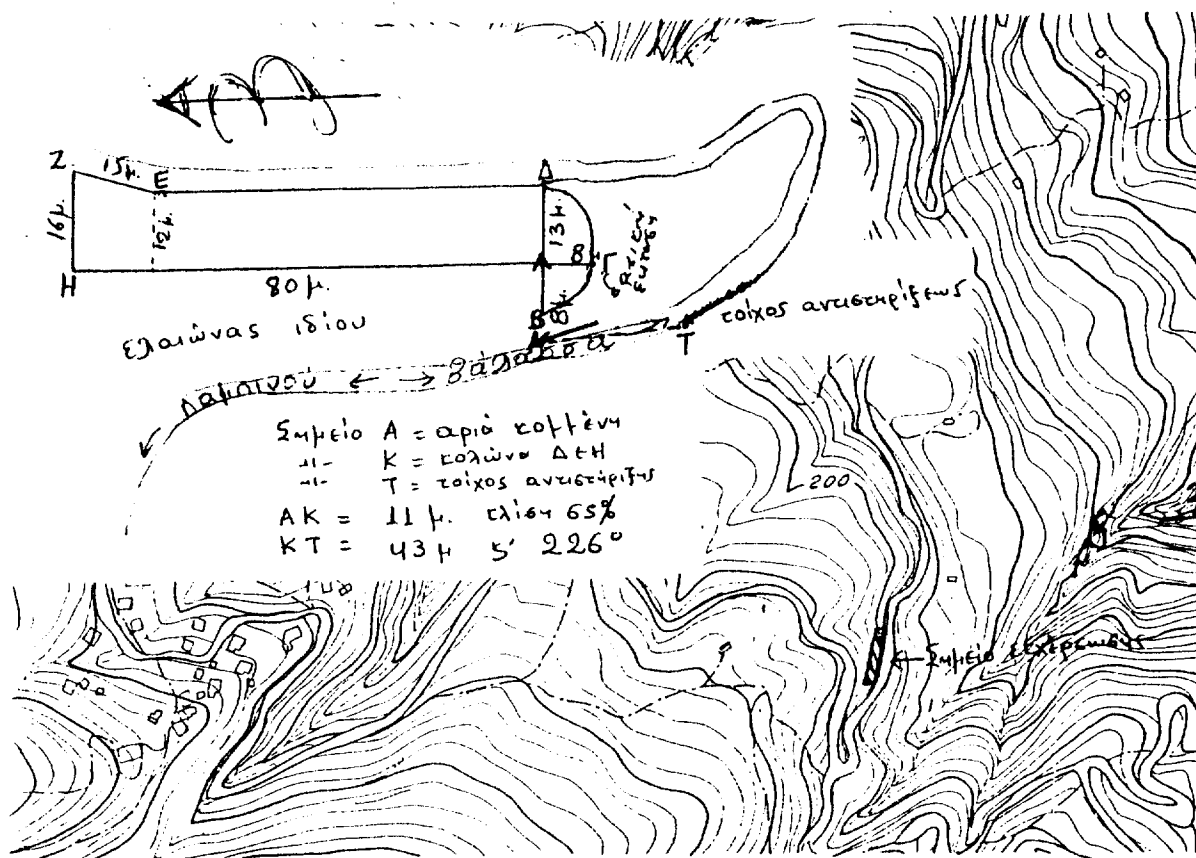 Z
15μ.
E
Δ
16μ.
12μ.
13μ.
8
H
80μ.
8μ.
ελαιώνας ιδίου
τοίχος αντιστηρίξεως
T
θάλασσα
Σημείο A = αριά κομμένη
-〃- K = κολώνα ΔΕΗ
-〃- T = τοίχος αντιστήριξης
AK = 11 μ. κλίση 65%
KT = 43 μ ς' 226°
200
Σημείο εκχέρσωσης